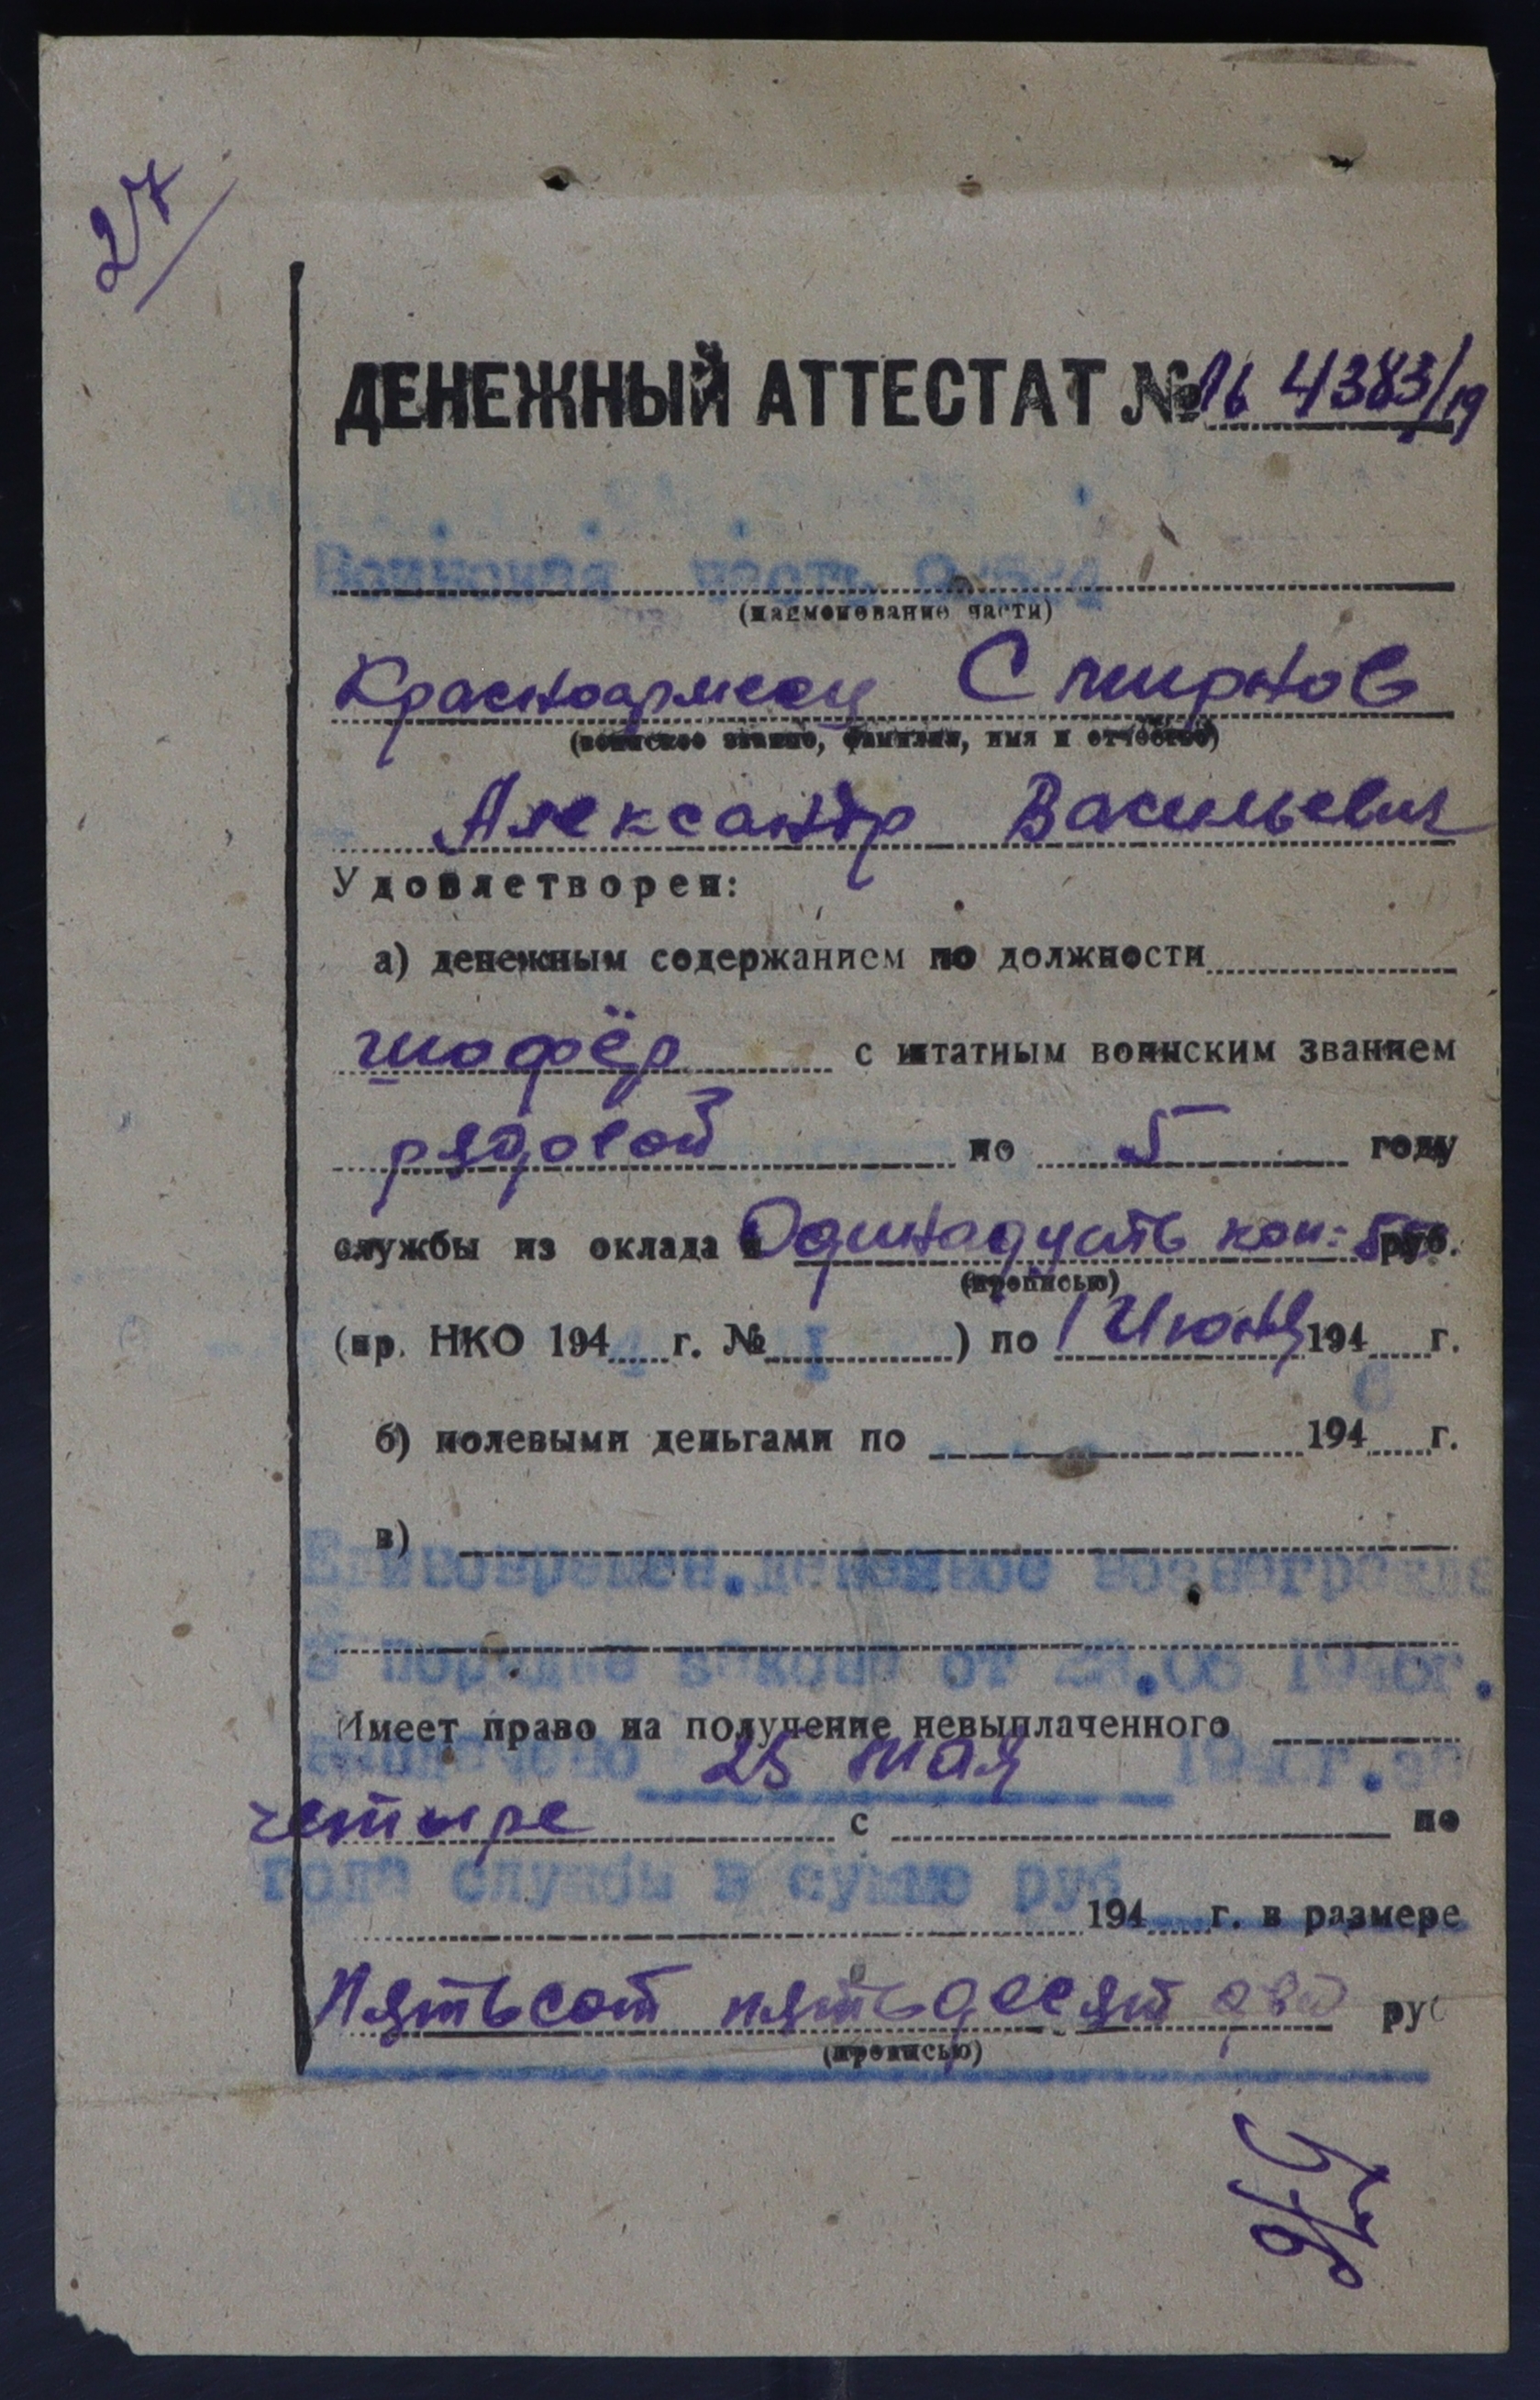 27
ДЕНЕЖНЫЙ АТТЕСТАТ № 4383/19
Воинская часть
(наименование части)
Красноармеец Смирнов
(воинское звание, фамилия, имя и отчество)
Александр Васильевич
Удовлетворен:
а) денежным содержанием по должности
шофёр с штатным воинским званием
рядовой по 5 году
службы из оклада в Одинадцать коп: руб.
(прописью)
(пр. НКО 194 4 г. № 1 ) по 1 Июня 194 г.
6
б) полевыми деньгами по 194 г.
в)
Единоврем ен. денежное вознагражде
в порядке закона от
Имеет право на получение невыплаченного
выплачено 25 мая 194 г. за
четыре с по
года службы в сумме руб
194 г. в размере
Пятьсот пятьдесят два руб
(прописью)